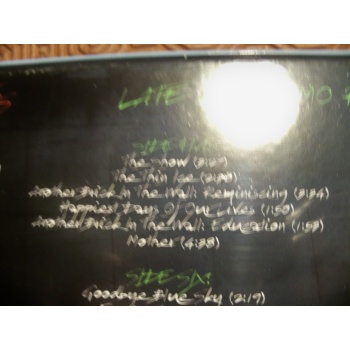 LATE
SIDE
The Show
The Thin Ice
Another Brick In The Wall: Reminiscing (3:34)
Happiest Days Of Our Lives (1:50)
Another Brick In The Wall: Education
Mother
SIDE SIX:
Goodbye Blue Sky (2:17)